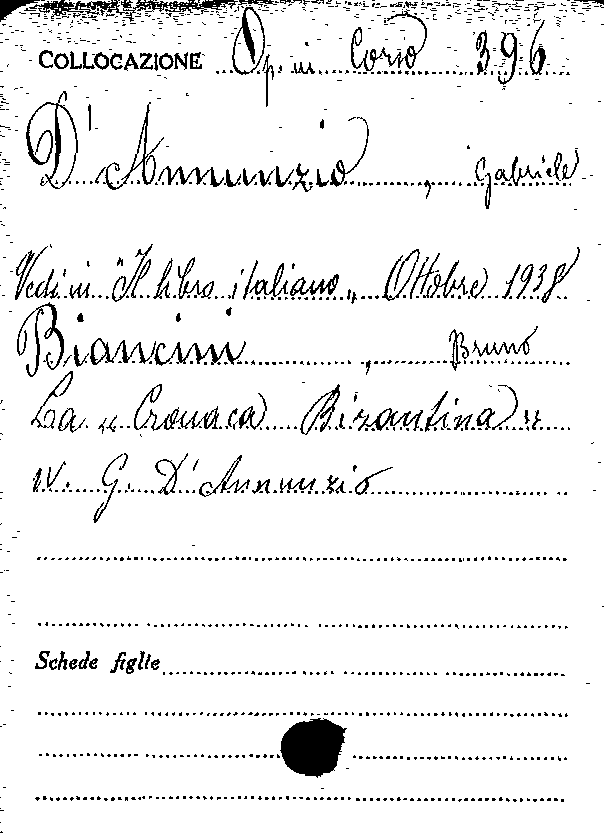 COLLOCAZIONE Op. in Corso 396
D'Annunzio, Gabriele
Vedi in "Il libro italiano" Ottobre 1938
Biancini, Bruno
La "Cronaca Bizantina"
G. D'Annunzio
Schede figlie